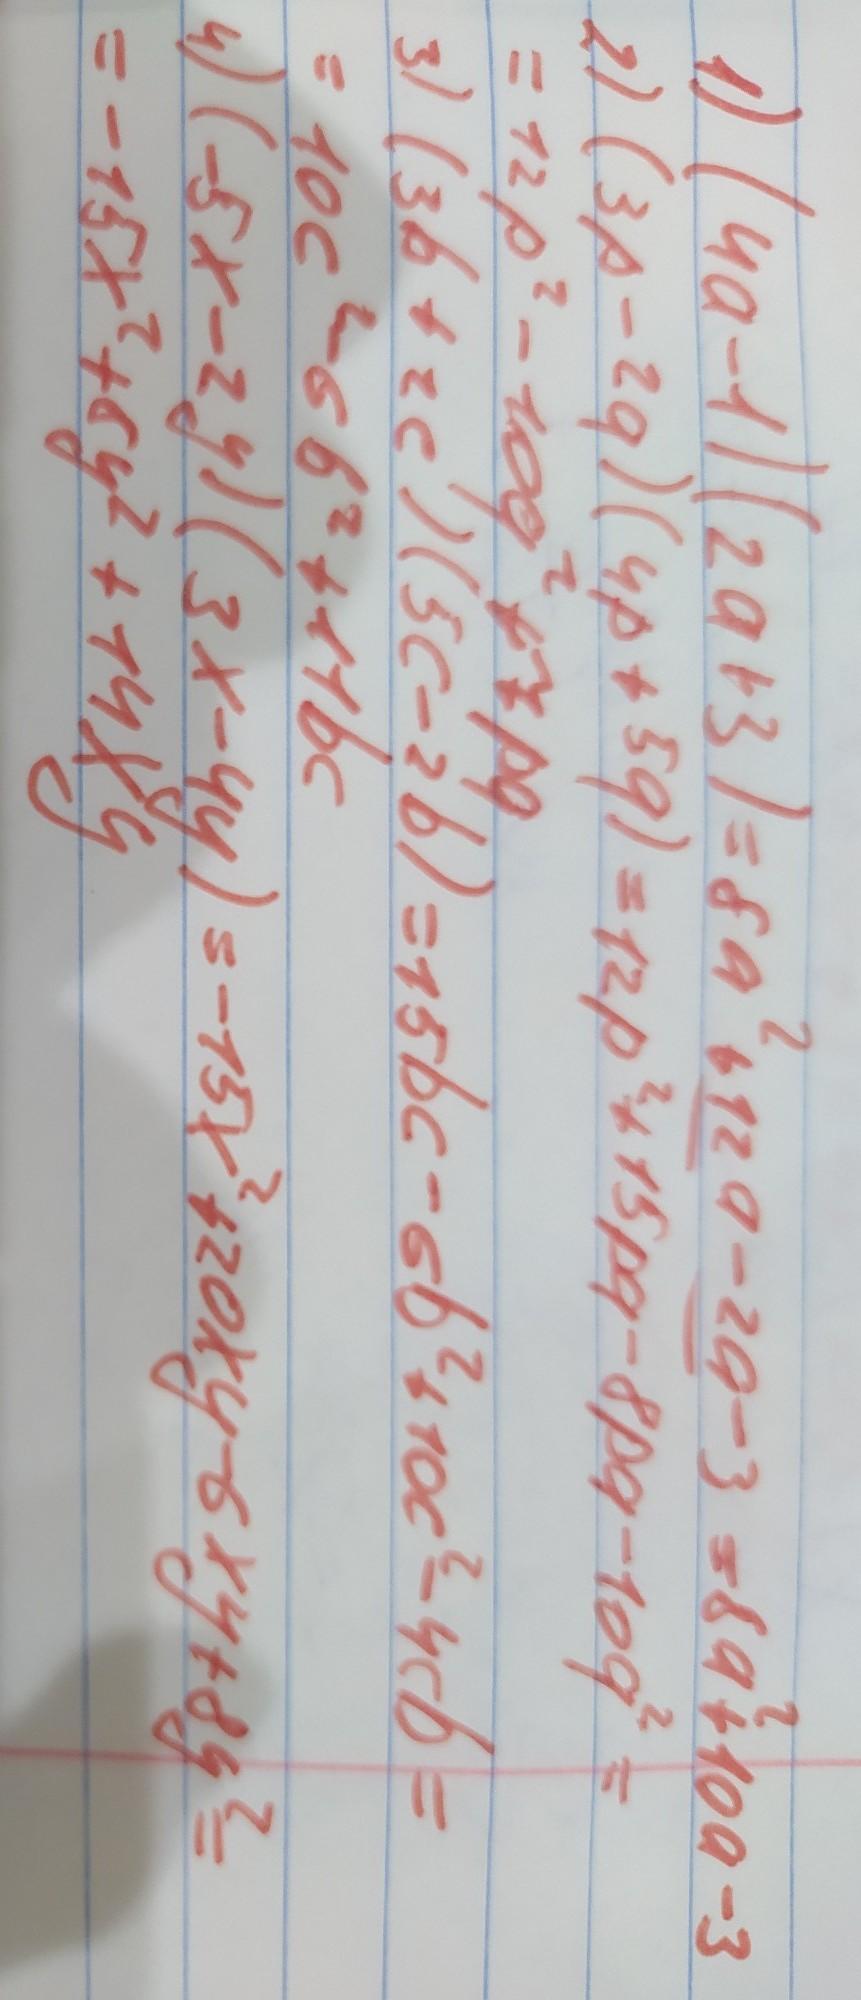 1) (4a-1)(2a+3)=8a²+12a-2a-3=8a²+10a-3
2) (3p-2q)(4p+5q)=12p²+15pq-8pq-10q²=
=12p²-10q²+7pq
3) (3b+2c)(5c-2b)=15bc-6b²+10c²-4cb=
=10c²-6b²+11bc
4) (-5x-2y)(3x-4y)=-15x²+20xy-6xy+8y²=
=-15x²+8y²+14xy